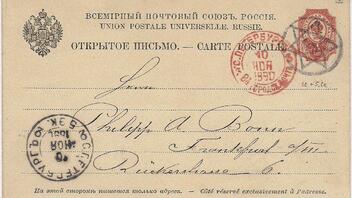 ВСЕМІРНЫЙ ПОЧТОВЫЙ СОЮЗЪ. РОССІЯ.
UNION POSTALE UNIVERSELLE. RUSSIE.
ОТКРЫТОЕ ПИСЬМО. — CARTE POSTALE.
С.ПЕТЕРБУРГ
10
НОЯ
1890
Herrn
Philipp A. Bonn
Frankfurt a/M
Rückerstrasse 6.
С.ПЕТЕРБУРГЪ
10
НОЯ
1890
На этой сторонѣ пишется только адресъ. — Côté réservé exclusivement à l'adresse.